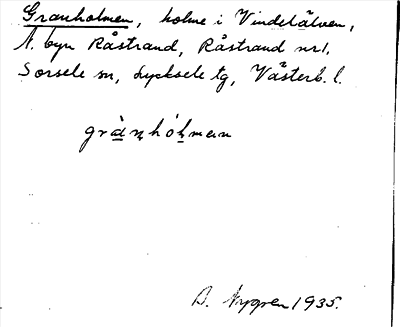 Granholmen, holme i Vindelälven,
N. byn Råstrand, Råstrand nr 1,
Sorsele sn, Lycksele tg, Västerb. l.
grànhólmen
A. Nygren 1935.